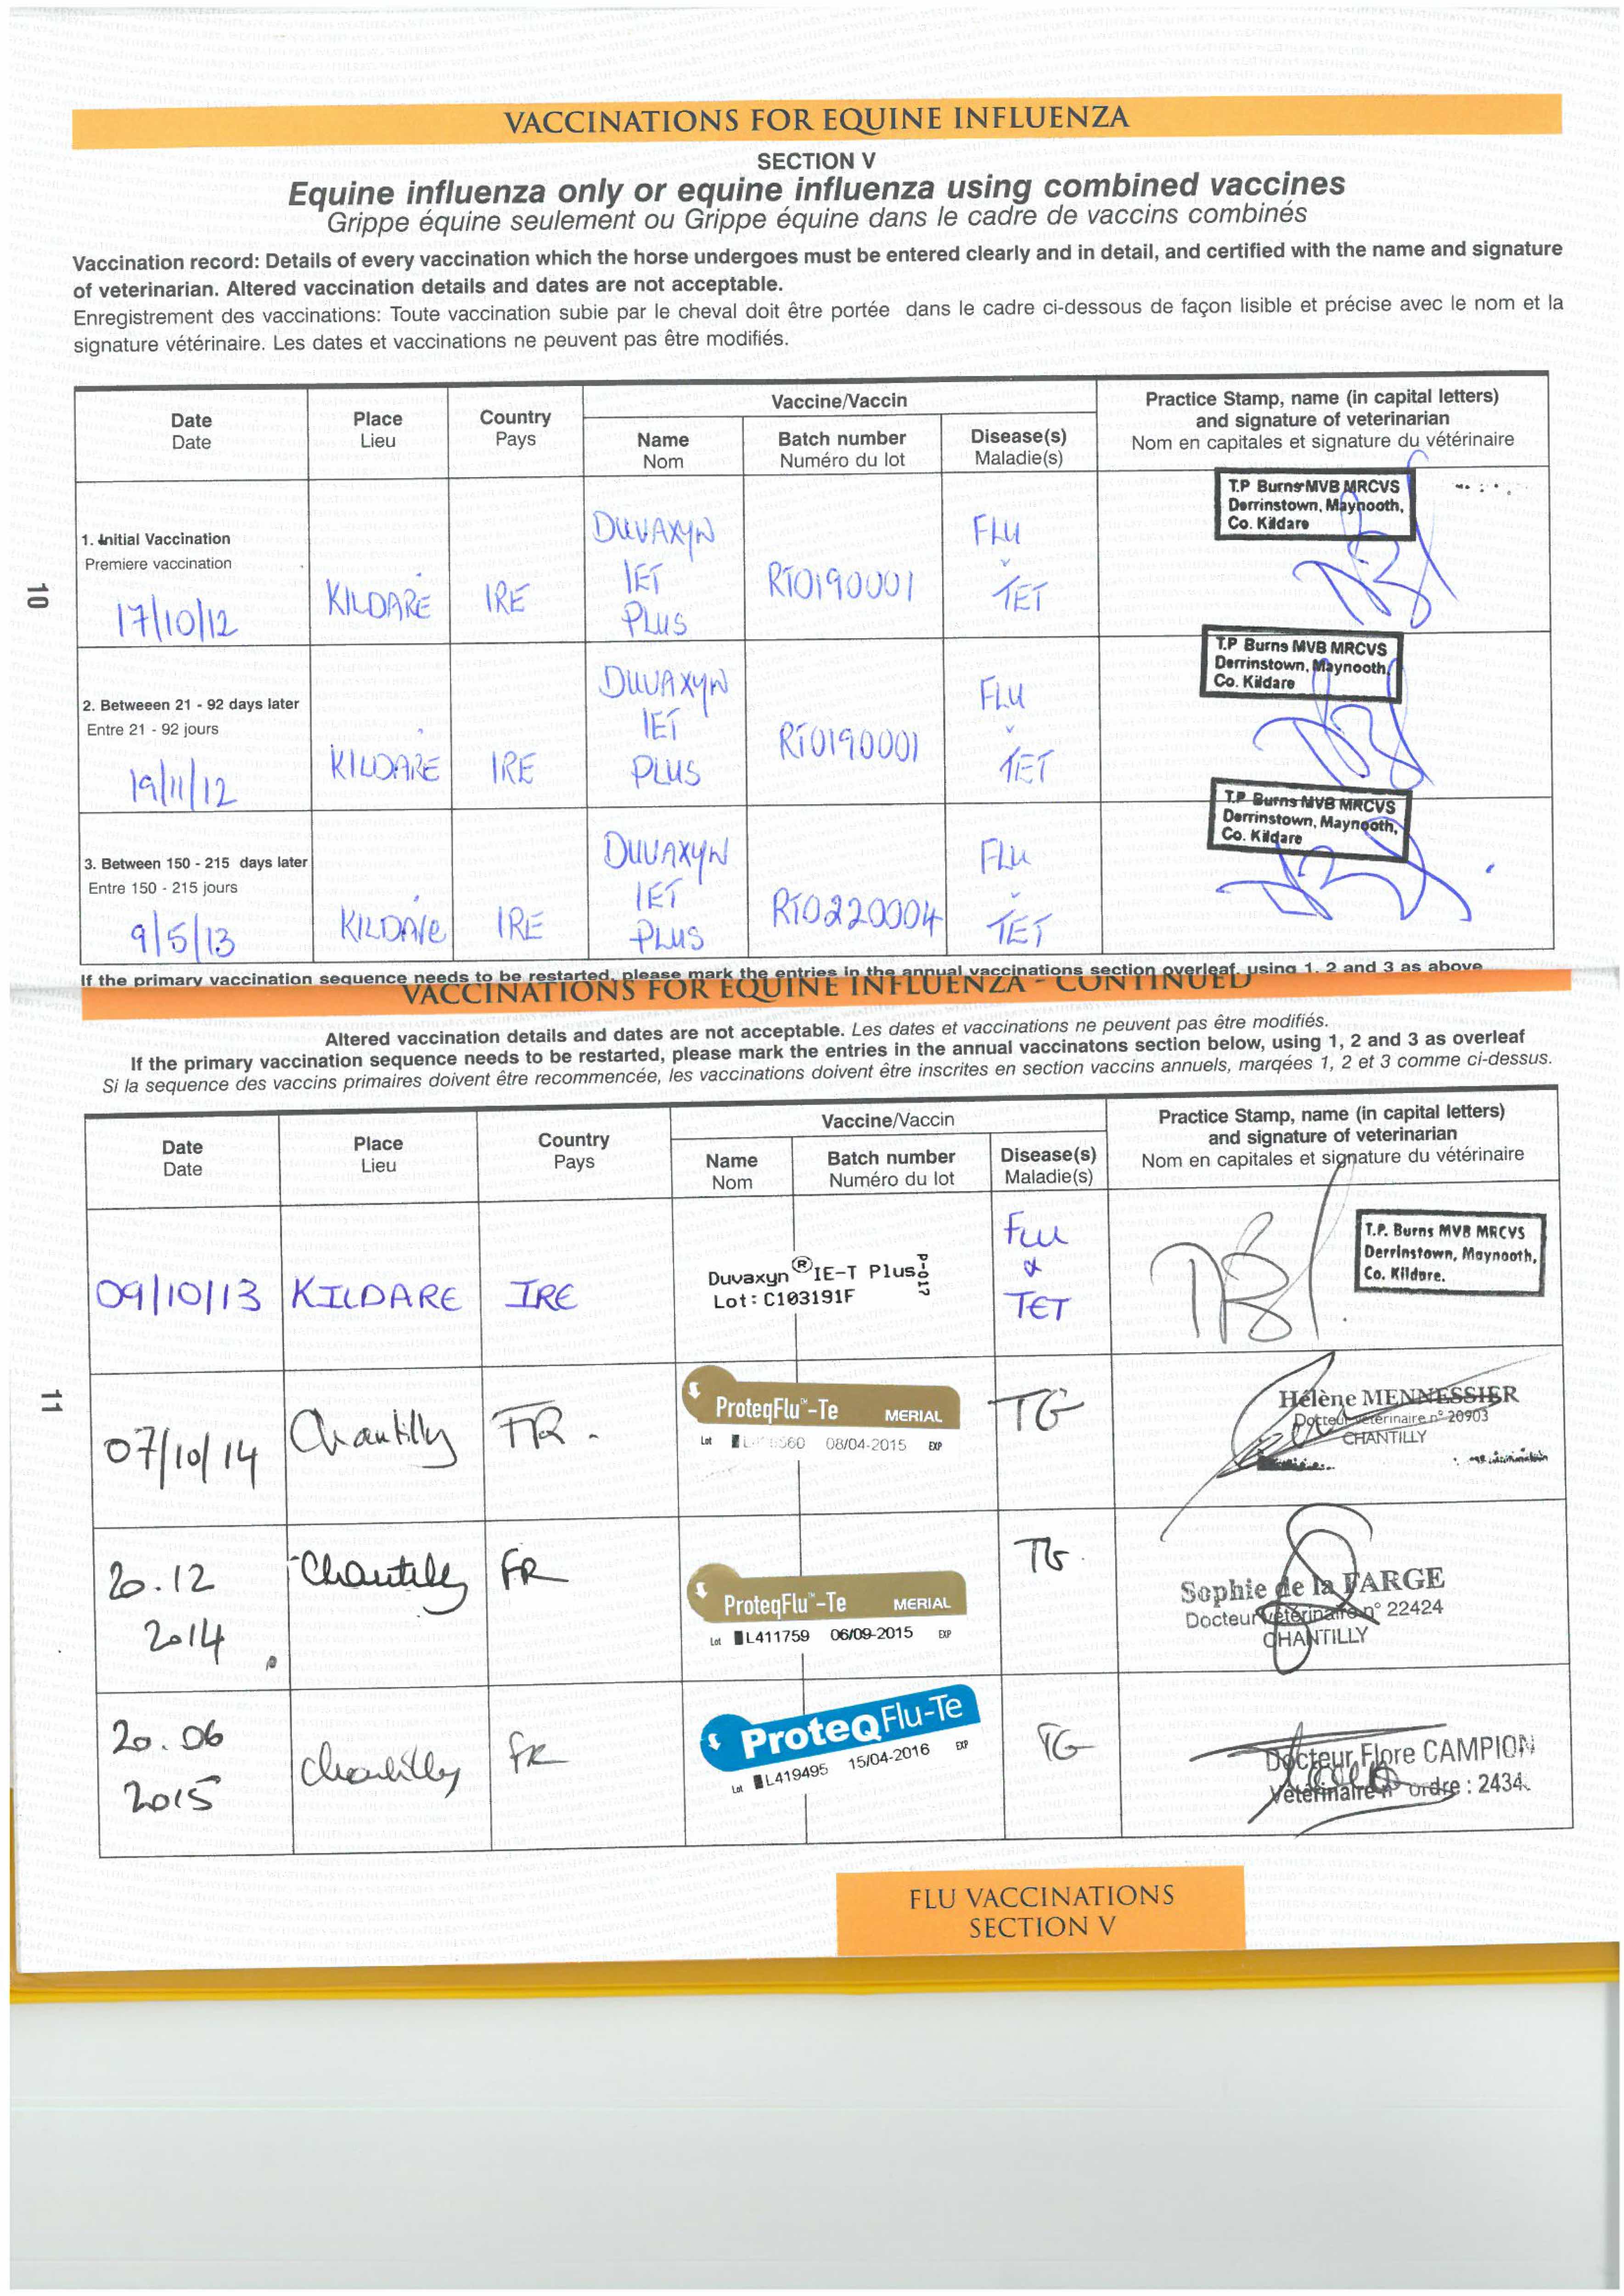 VACCINATIONS FOR EQUINE INFLUENZA
SECTION V
Equine influenza only or equine influenza using combined vaccines
Grippe équine seulement ou Grippe équine dans le cadre de vaccins combinés
Vaccination record: Details of every vaccination which the horse undergoes must be entered clearly and in detail, and certified with the name and signature
of veterinarian. Altered vaccination details and dates are not acceptable.
Enregistrement des vaccinations: Toute vaccination subie par le cheval doit être portée dans le cadre ci-dessous de façon lisible et précise avec le nom et la
signature vétérinaire. Les dates et vaccinations ne peuvent pas être modifiés.
Date
Date
Place
Lieu
Country
Pays
Vaccine/Vaccin
Name
Nom
Batch number
Numéro du lot
Disease(s)
Maladie(s)
Practice Stamp, name (in capital letters)
and signature of veterinarian
Nom en capitales et signature du vétérinaire
1. Initial Vaccination
Premiere vaccination
17/10/12
KILDARE
IRE
DUVAXYN
IET
PLUS
RT0190001
FLU
TET
T.P Burns MVB MRCVS
Derrinstown, Maynooth,
Co. Kildare
2. Betweeen 21 - 92 days later
Entre 21 - 92 jours
19/11/12
KILDARE
IRE
DUVAXYN
IET
PLUS
RT0190001
FLU
TET
T.P Burns MVB MRCVS
Derrinstown, Maynooth,
Co. Kildare
3. Between 150 - 215 days later
Entre 150 - 215 jours
9/5/13
KILDARE
IRE
DUVAXYN
IET
PLUS
RT0220004
FLU
TET
T.P Burns MVB MRCVS
Derrinstown, Maynooth,
Co. Kildare
10
If the primary vaccination sequence needs to be restarted, please mark the entries in the annual vaccinations section overleaf, using 1, 2 and 3 as above
VACCINATIONS FOR EQUINE INFLUENZA - CONTINUED
Altered vaccination details and dates are not acceptable. Les dates et vaccinations ne peuvent pas être modifiés.
If the primary vaccination sequence needs to be restarted, please mark the entries in the annual vaccinatons section below, using 1, 2 and 3 as overleaf
Si la sequence des vaccins primaires doivent être recommencée, les vaccinations doivent être inscrites en section vaccins annuels, marqées 1, 2 et 3 comme ci-dessus.
Date
Date
Place
Lieu
Country
Pays
Vaccine/Vaccin
Name
Nom
Batch number
Numéro du lot
Disease(s)
Maladie(s)
Practice Stamp, name (in capital letters)
and signature of veterinarian
Nom en capitales et signature du vétérinaire
09/10/13
KILDARE
IRE
Duvaxyn® IE-T Plus
Lot: C103191F
P-017
Flu
&
TET
T.P. Burns MVB MRCVS
Derrinstown, Maynooth,
Co. Kildare.
11
07/10/14
Chantilly
FR.
ProteqFlu™-Te MERIAL
Lot 08/04-2015 EXP
TG
Hélène MENNESSIER
Docteur vétérinaire n° 20903
CHANTILLY
20.12
2014
Chantilly
FR
ProteqFlu™-Te MERIAL
Lot L411759 06/09-2015 EXP
TG
Sophie de la FARGE
Docteur vétérinaire n° 22424
CHANTILLY
20.06
2015
Chantilly
FR
ProteqFlu-Te
Lot L419495 15/04-2016 EXP
TG
Docteur Flore CAMPION
Vétérinaire n° ordre : 2434
FLU VACCINATIONS
SECTION V